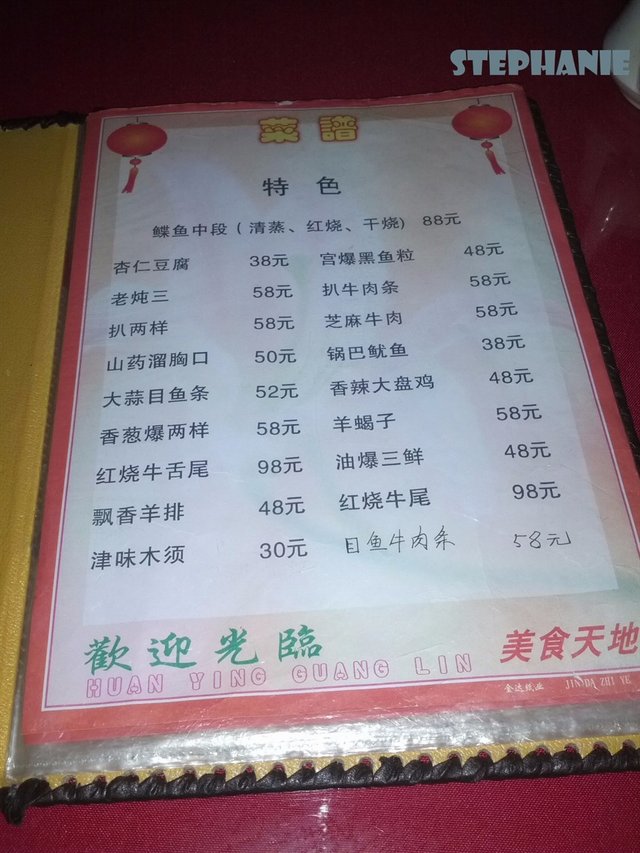 STEPHANIE
菜譜
特色
鲽鱼中段(清蒸、红烧、干烧) 88元
杏仁豆腐 38元 宫爆黑鱼粒 48元
老炖三 58元 扒牛肉条 58元
扒两样 58元 芝麻牛肉 58元
山药溜胸口 50元 锅巴鱿鱼 38元
大蒜目鱼条 52元 香辣大盘鸡 48元
香葱爆两样 58元 羊蝎子 58元
红烧牛舌尾 98元 油爆三鲜 48元
飘香羊排 48元 红烧牛尾 98元
津味木须 30元 目鱼牛肉条 58元
歡迎光臨 美食天地
HUAN YING GUANG LIN
金达纸业 JINDA ZHI YE